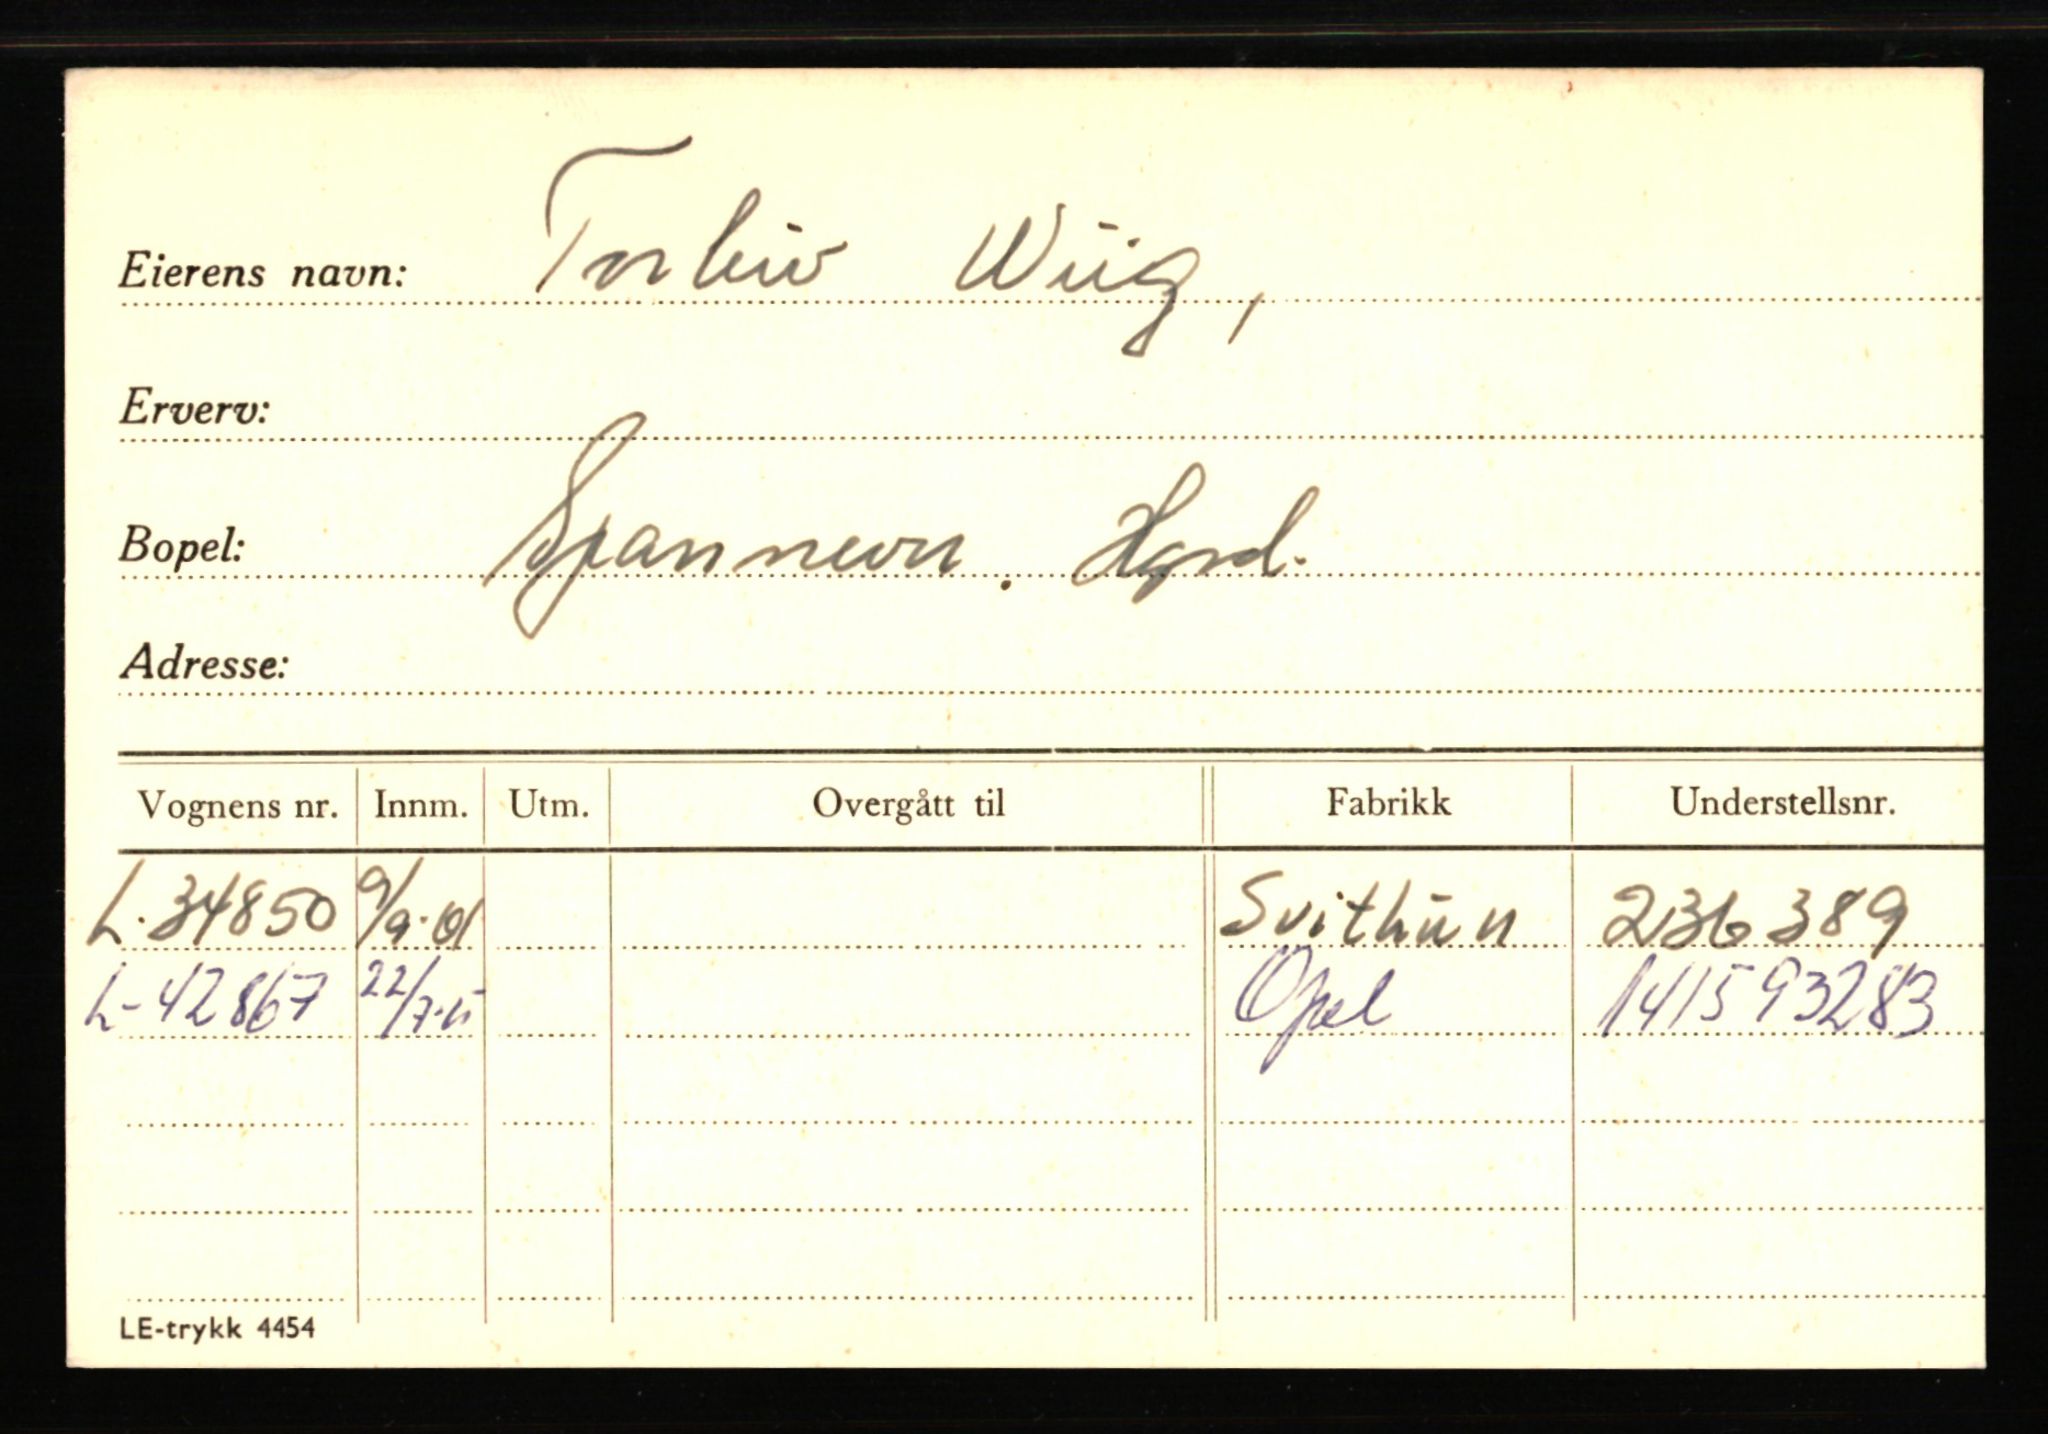 Eierens navn: Torleiv Wiig,
Erverv:
Bopel: Spannevn. Hgsd.
Adresse:
Vognens nr. Innm. Utm. Overgått til Fabrikk Understellsnr.
L-34850 9/9-61 Svithun 236389
L-42867 22/7- Opel 141593283
LE-trykk 4454